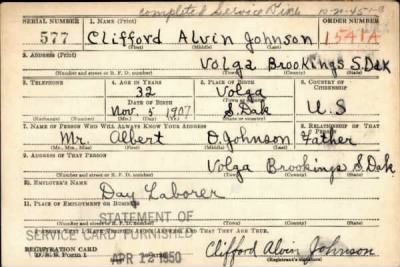 completed Service
SERIAL NUMBER 1. NAME (Print) ORDER NUMBER
577 Clifford Alvin Johnson 1541A
(First) (Middle) (Last)
2. ADDRESS (Print)
Volga Brookings S. Dak
(Number and street or R. F. D. number) (Town) (County) (State)
3. TELEPHONE 4. AGE IN YEARS 5. PLACE OF BIRTH 6. COUNTRY OF CITIZENSHIP
32 Volga
DATE OF BIRTH
Nov. 5 1907 S. Dak U.S
(Exchange) (Number) (Mo.) (Day) (Yr.) (State or country)
7. NAME OF PERSON WHO WILL ALWAYS KNOW YOUR ADDRESS 8. RELATIONSHIP OF THAT PERSON
Mr. Albert D Johnson Father
(Mr., Mrs., Miss) (First) (Middle) (Last)
9. ADDRESS OF THAT PERSON
Volga Brookings S. Dak
(Number and street or R. F. D. number) (Town) (County) (State)
10. EMPLOYER'S NAME
Day Laborer
11. PLACE OF EMPLOYMENT OR BUSINESS
(Number and street or R. F. D. number) (Town) (County) (State)
STATEMENT OF
I AFFIRM THAT I HAVE VERIFIED ABOVE ANSWERS AND THAT THEY ARE TRUE.
SERVICE CARD FURNISHED
REGISTRATION CARD
D. S. S. Form 1 APR 12 1950 Clifford Alvin Johnson
(Registrant's signature)